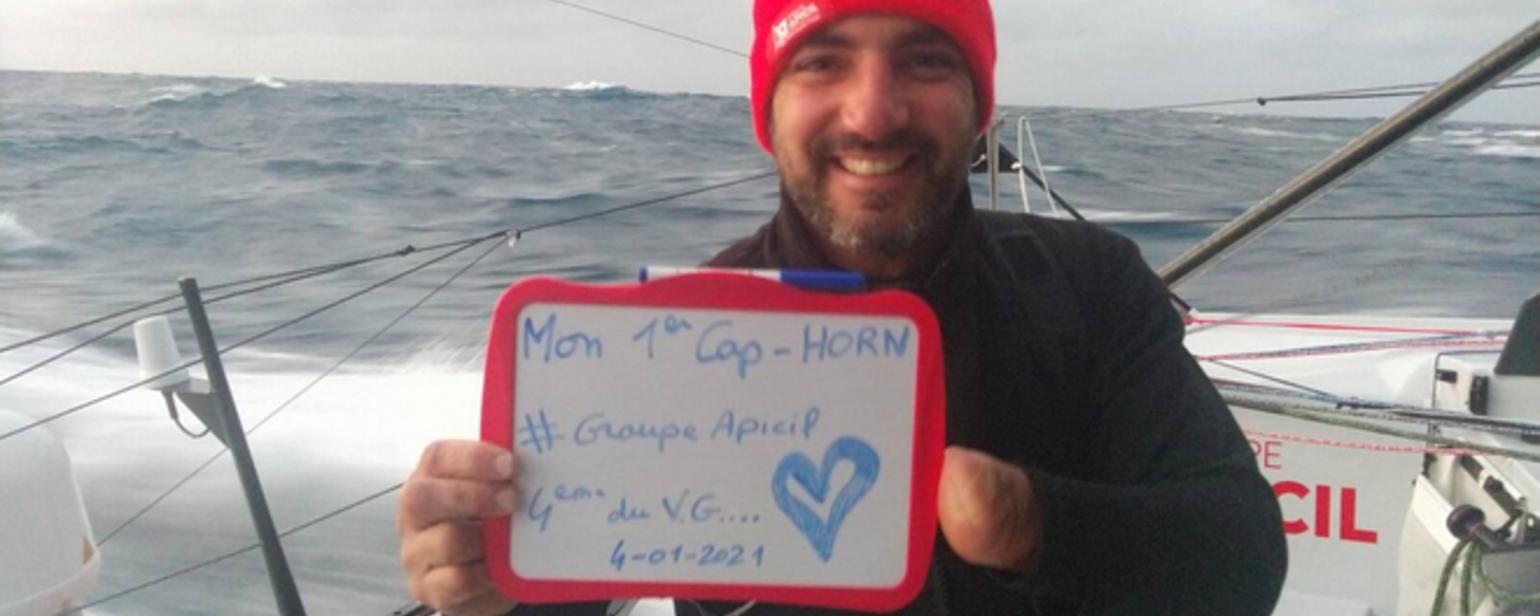 Mon 1er Cap-HORN
# Groupe Apicil
4ème du V.G....
4-01-2021
PE
CIL